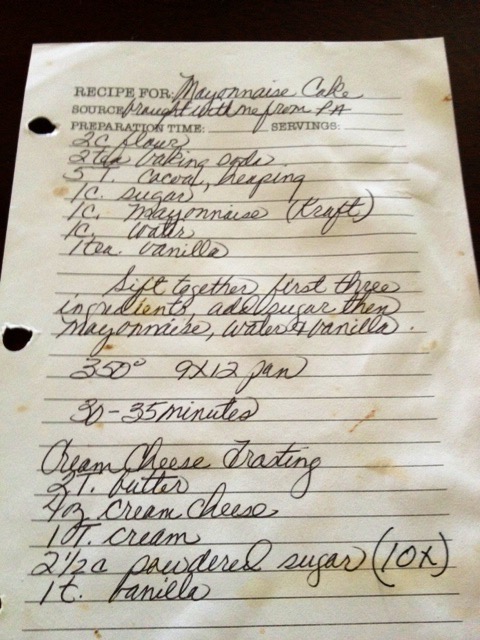 RECIPE FOR: Mayonnaise Cake
SOURCE brought with me from PA
PREPARATION TIME: SERVINGS:
2c flour
2 tea baking soda
5 T. cocoa, heaping
1c. sugar
1c. Mayonnaise (Kraft)
1c. water
1 tea. vanilla
Sift together first three
ingredients, add sugar then
mayonnaise, water & vanilla.
350° 9x12 pan
30-35 minutes
Cream Cheese Frosting
2T. butter
4oz. cream cheese
1 T. cream
2 1/2 c powdered sugar (10x)
1 t. vanilla